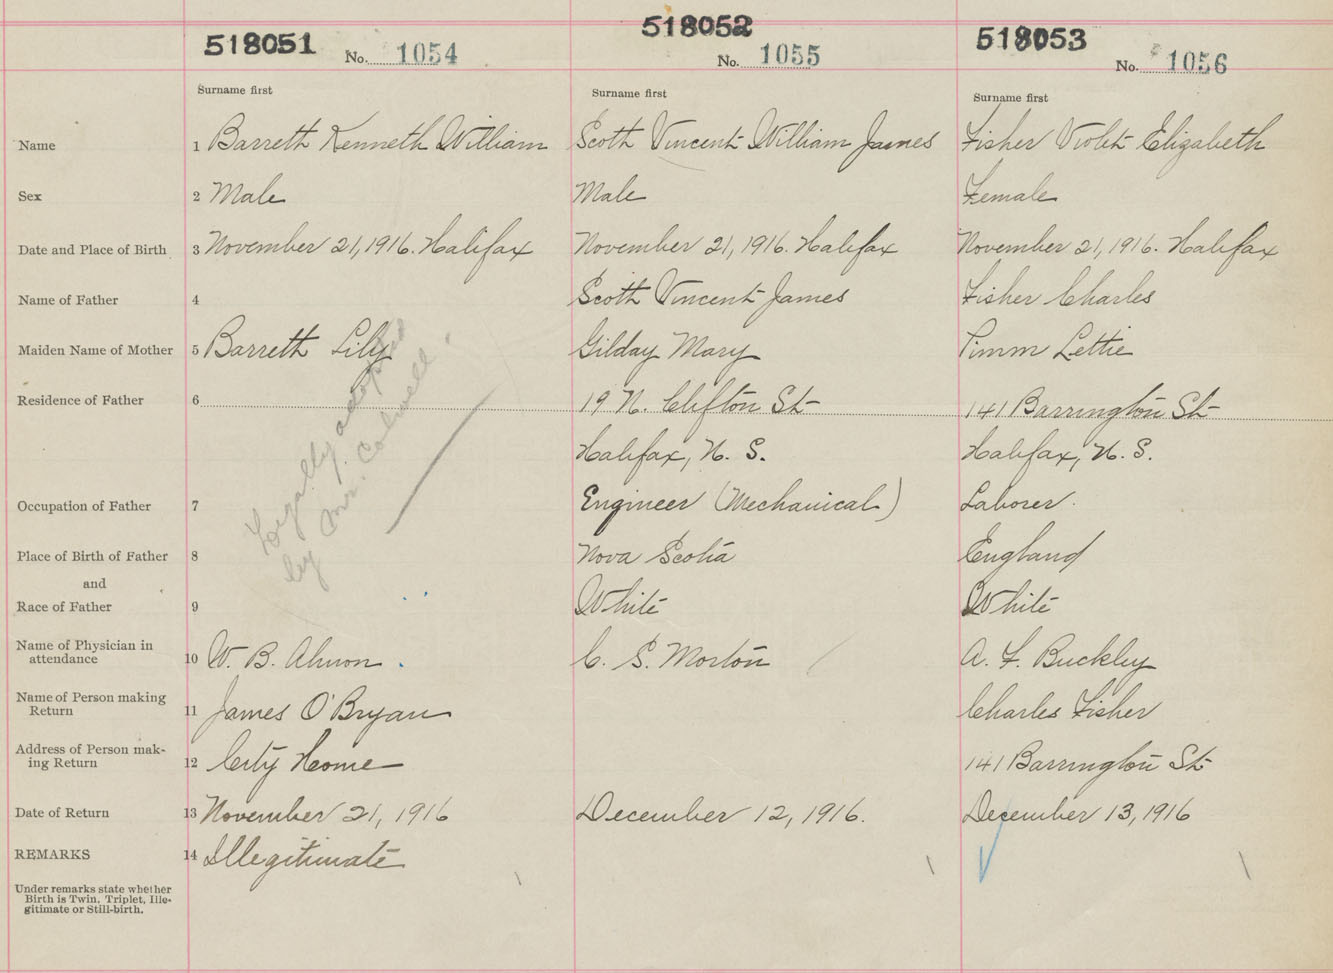 518051 No. 1054
518052 No. 1055
518053 No. 1056
Surname first Surname first Surname first
Name 1 Barrett Kenneth William Scott Vincent William James Fisher Violet Elizabeth
Sex 2 Male Male Female
Date and Place of Birth 3 November 21, 1916. Halifax November 21, 1916. Halifax November 21, 1916. Halifax
Name of Father 4 Scott Vincent James Fisher Charles
Maiden Name of Mother 5 Barrett Lily Gilday Mary Pimm Lettie
Residence of Father 6 19 N. Clifton St 141 Barrington St
Halifax, N. S. Halifax, N. S.
Legally adopted
by Mr. Colwell.
Occupation of Father 7 Engineer (Mechanical) Laborer.
Place of Birth of Father 8 Nova Scotia England
and
Race of Father 9 White White
Name of Physician in
attendance 10 W. B. Almon C. S. Morton A. F. Buckley
Name of Person making
Return 11 James O'Bryan Charles Fisher
Address of Person mak-
ing Return 12 City Home 141 Barrington St
Date of Return 13 November 21, 1916 December 12, 1916. December 13, 1916
REMARKS 14 Illegitimate
Under remarks state whether
Birth is Twin, Triplet, Ille-
gitimate or Still-birth.